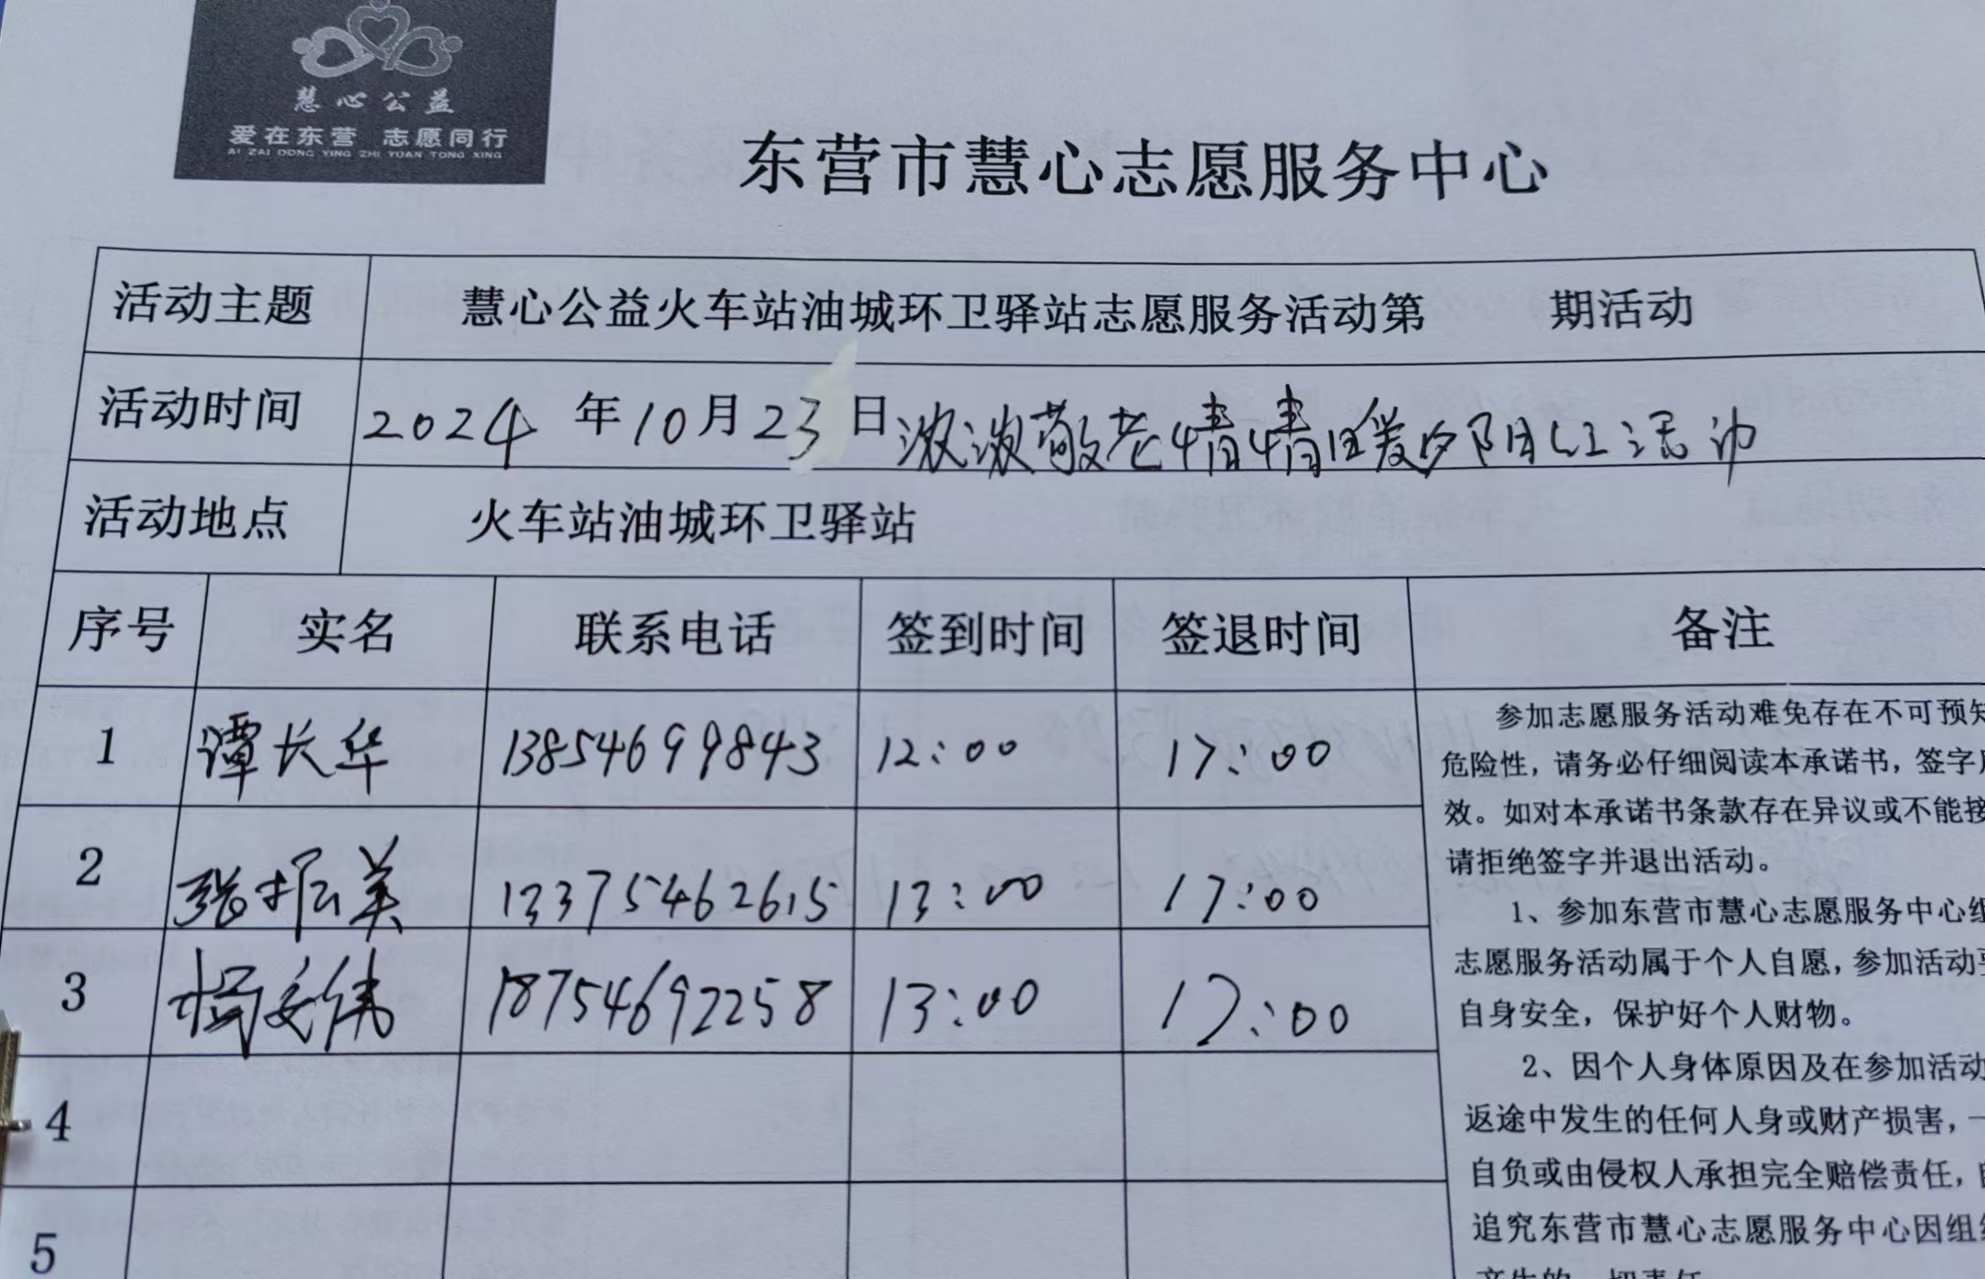 慧心公益
爱在东营 志愿同行
AI ZAI DONG YING ZHI YUAN TONG XING
东营市慧心志愿服务中心
活动主题 慧心公益火车站油城环卫驿站志愿服务活动第 期活动
活动时间 2024 年 10 月 23 日 浓浓敬老情情暖夕阳红活动
活动地点 火车站油城环卫驿站
序号 实名 联系电话 签到时间 签退时间 备注
1 谭长华 13854699843 12:00 17:00
2 张振美 13375462615 13:00 17:00
3 杨文伟 18754692258 13:00 17:00
4
5
参加志愿服务活动难免存在不可预知
危险性，请务必仔细阅读本承诺书，签字
效。如对本承诺书条款存在异议或不能接
请拒绝签字并退出活动。
1、参加东营市慧心志愿服务中心组
志愿服务活动属于个人自愿，参加活动要
自身安全，保护好个人财物。
2、因个人身体原因及在参加活动
返途中发生的任何人身或财产损害，一
自负或由侵权人承担完全赔偿责任，
追究东营市慧心志愿服务中心因组